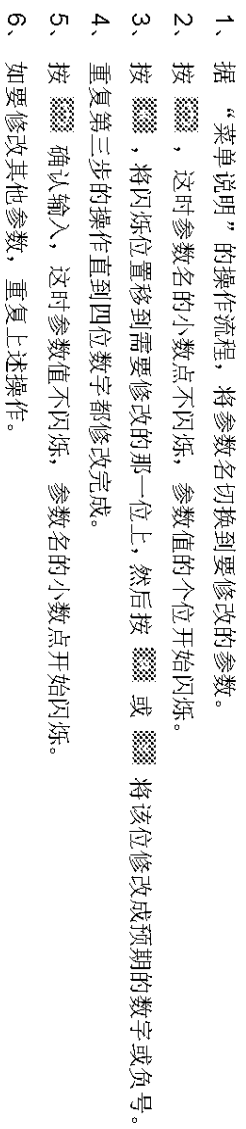 1、据“菜单说明”的操作流程，将参数名切换到要修改的参数。
2、按 ，这时参数名的小数点不闪烁，参数值的个位开始闪烁。
3、按 ，将闪烁位置移到需要修改的那一位上，然后按 或 将该位修改成预期的数字或负号。
4、重复第三步的操作直到四位数字都修改完成。
5、按 确认输入，这时参数值不闪烁，参数名的小数点开始闪烁。
6、如要修改其他参数，重复上述操作。